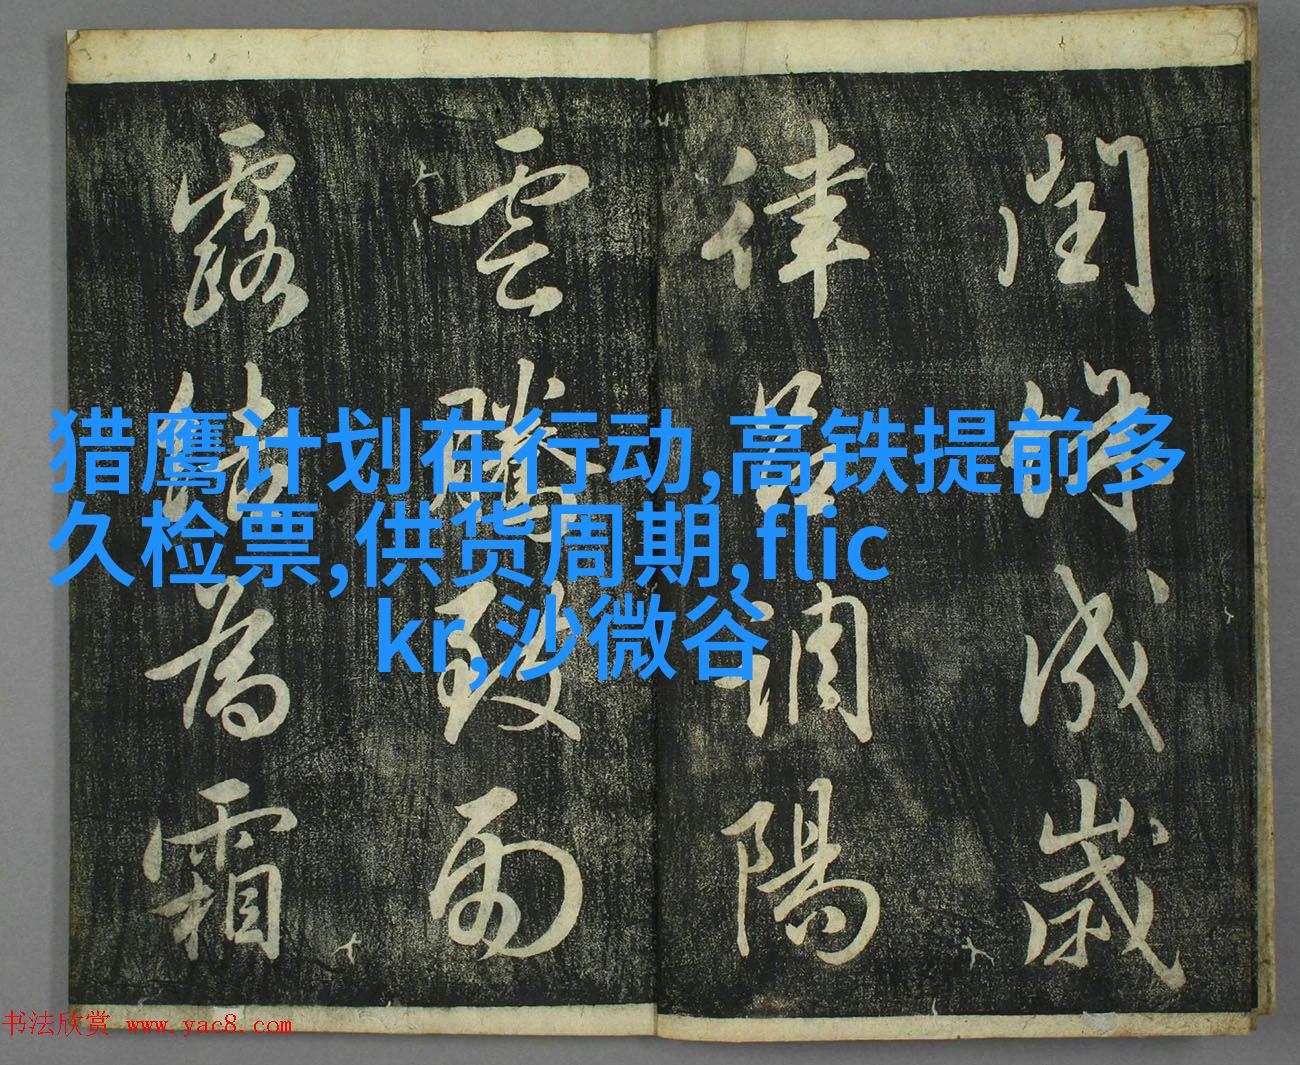 閏餘成歲
律呂調陽
雲騰致雨
露結為霜
猎鹰计划在行动,高铁提前多
久检票,供货周期,flic
kr,沙微谷
书法欣赏 www.yac8.com